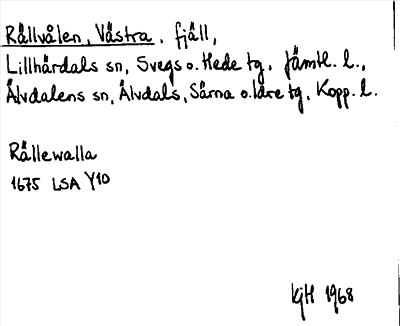 Rållvålen, Västra, fjäll,
Lillhärdals sn, Svegs o. Hede tg, Jämtl. l.,
Älvdalens sn, Älvdals, Särna o. Idre tg, Kopp. l.
Rållewalla
1675 LSA Y10
KjH 1968